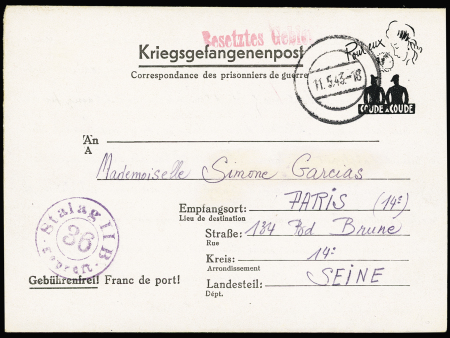 Besetztes Gebiet
Kriegsgefangenenpost
Correspondance des prisonniers de guerre
Pour eux
11.5.43.-18
COUDE À COUDE
An
A
Mademoiselle Simone Garcias
Empfangsort: PARIS (14e)
Lieu de destination
Straße: 134 Bod Brune
Rue
Kreis: 14e
Arrondissement
Landesteil: SEINE
Dépt.
Stalag II B
36
Geprüft
Gebührenfrei! Franc de port!